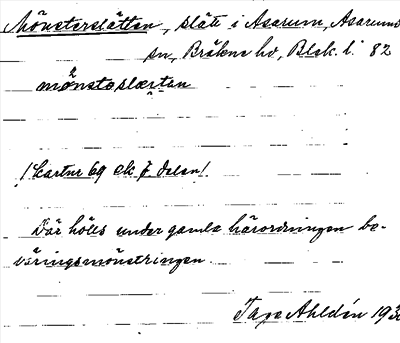 Mönsterslätten, slätt i Asarum, Asarums
sn, Bräkne hd, Blek. l. 82
mönstəslætən
/Kartnr 69 ek f. delen/
Där hölls under gamla härordningen be-
väringsmönstringen.
Tage Ahldén 193